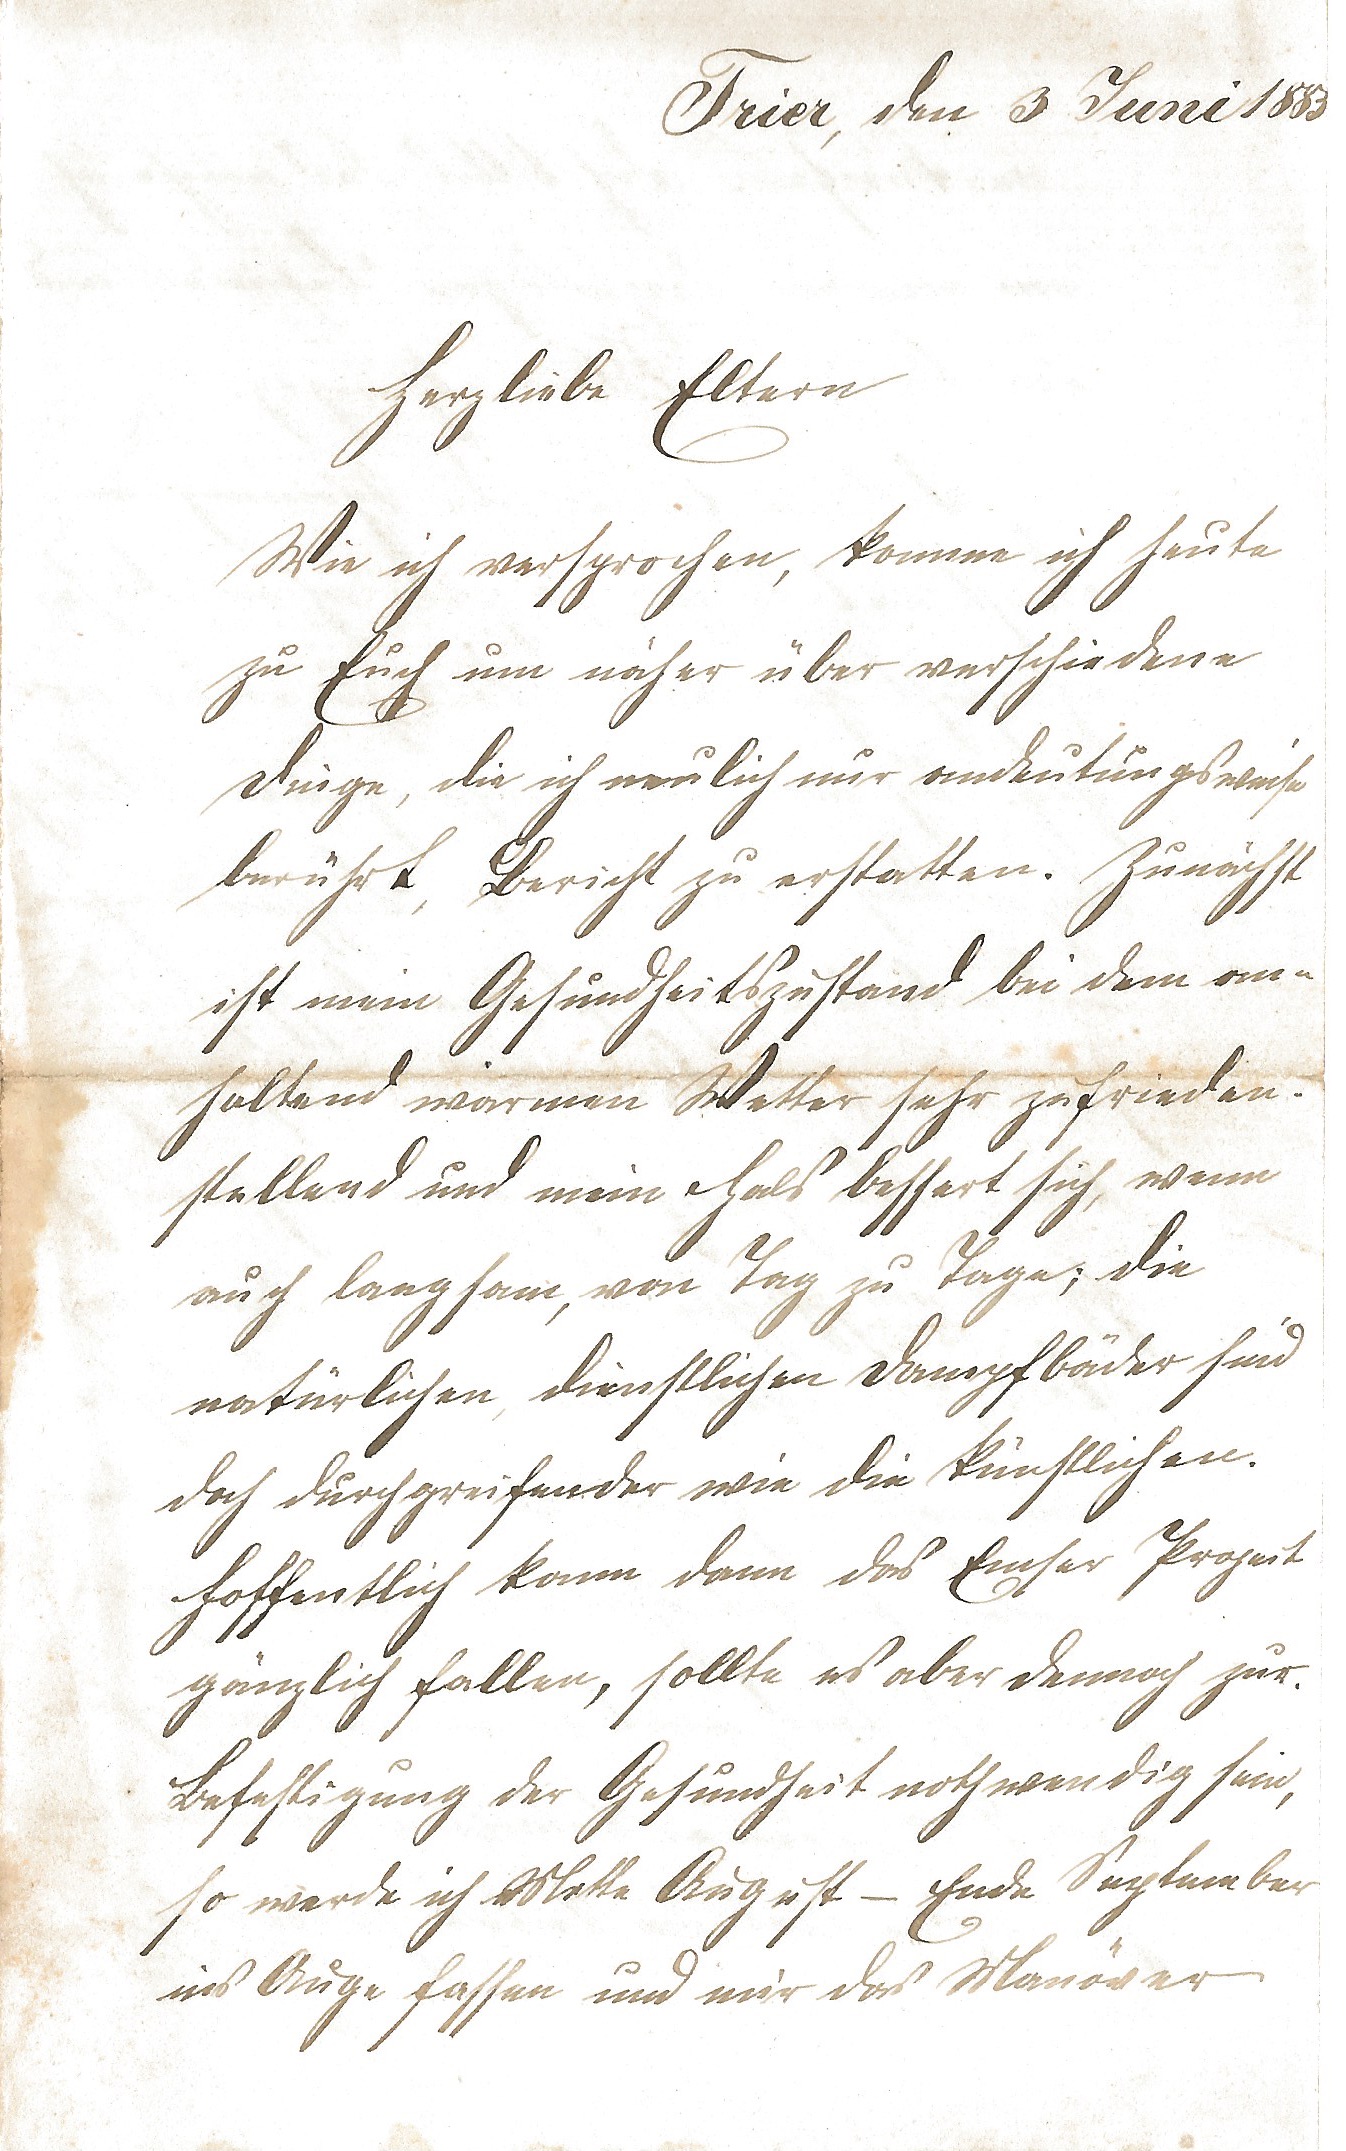 Trier, den 3 Juni 1883
Herzliebe Eltern
Wie ich versprochen, komme ich heute
zu Euch um näher über verschiedene
Dinge, die ich neulich nur andeutungsweise
berührt, Bericht zu erstatten. Zunächst
ist mein Gesundheitszustand bei dem an-
haltend warmen Wetter sehr zufrieden-
stellend und mein Hals bessert sich, wenn
auch langsam, von Tag zu Tage; die
natürlichen, dienstlichen Dampfbäder sind
doch durchgreifender wie die künstlichen.
Hoffentlich kann dann das Emser Project
gänzlich fallen, sollte es aber dennoch zur
Befestigung der Gesundheit nothwendig sein,
so werde ich Mitte August – Ende September
ins Auge fassen und mir das Manöver